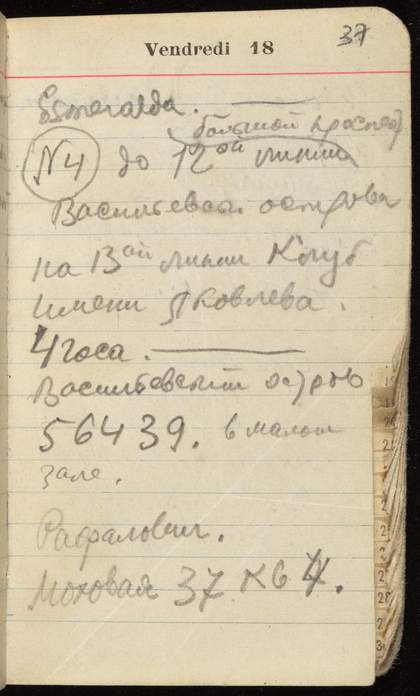 Vendredi 18
37
Esmeralda.
большой проспект
N4 до 12ой линии
Васильевск. острова
на 13ай линии Клуб
имени Яковлева.
4 часа.
Васильевский остров
56439. в малом
зале.
Рафалович.
Моховая 37 кв 4.